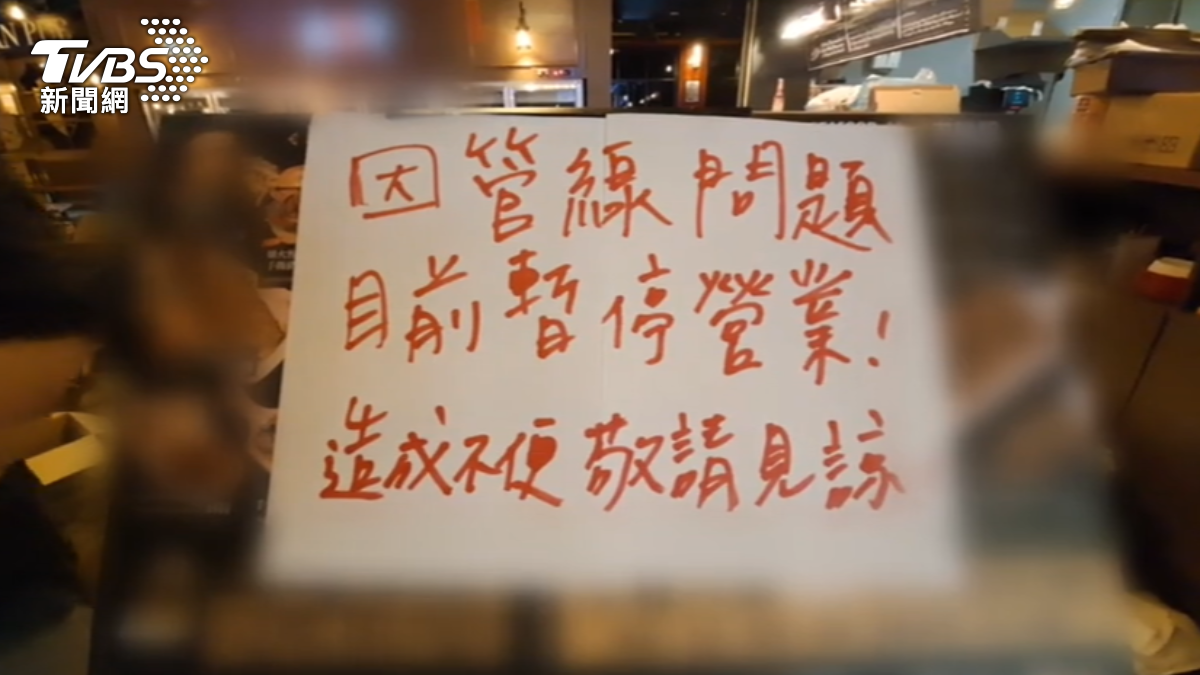 TVBS
新聞網
因管線問題
目前暫停營業!
造成不便敬請見諒